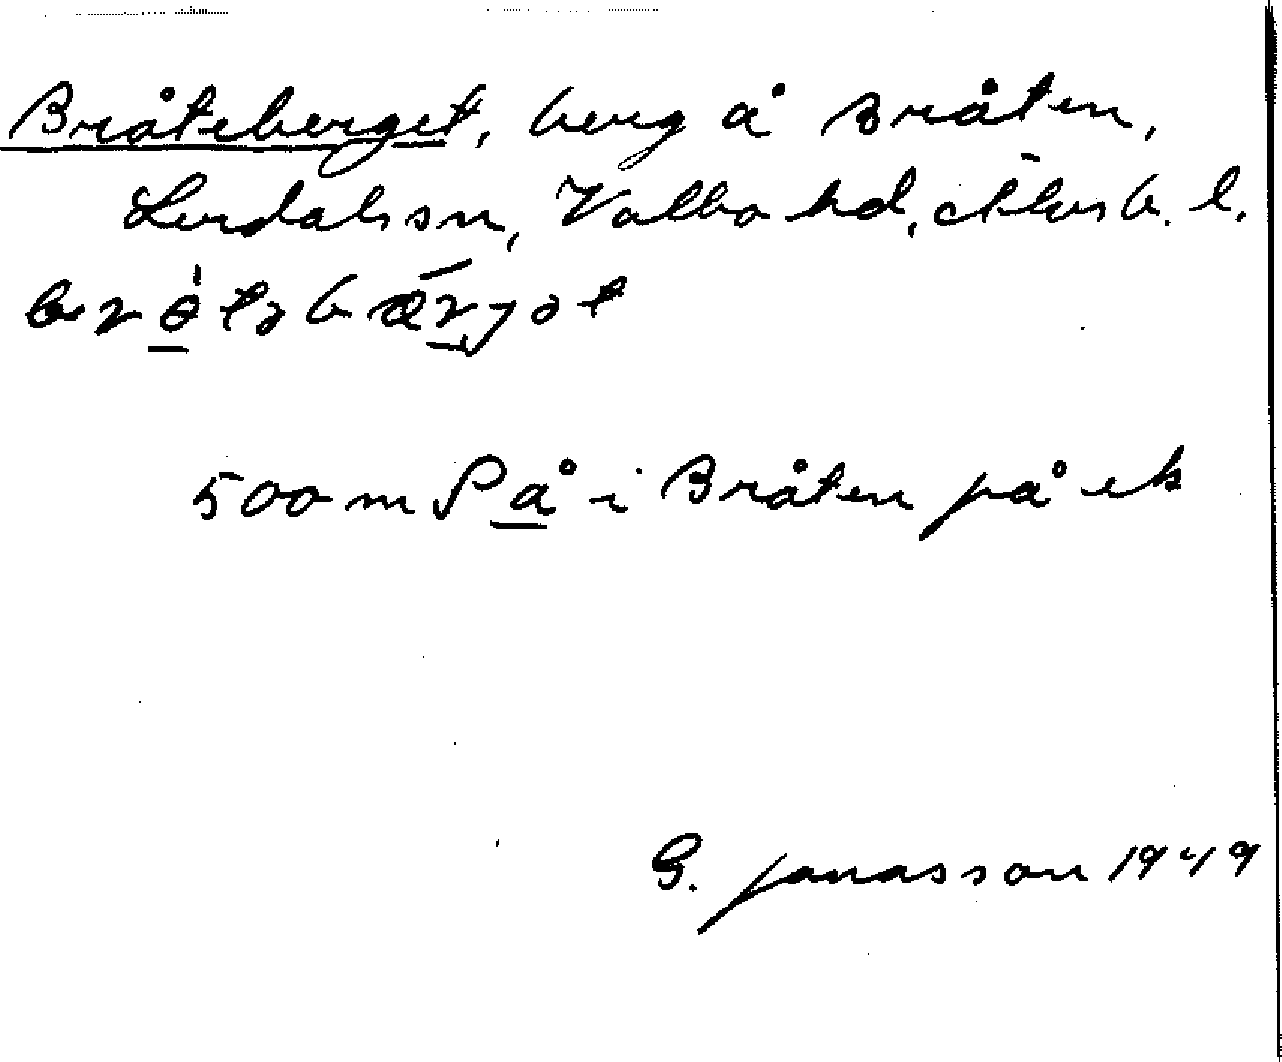 Bråteberget, berg å Bråten,
Lerdals sn, Valbo hd, Älvsb. l.
500 m S å i Bråten på ek
G. Jonasson 1949